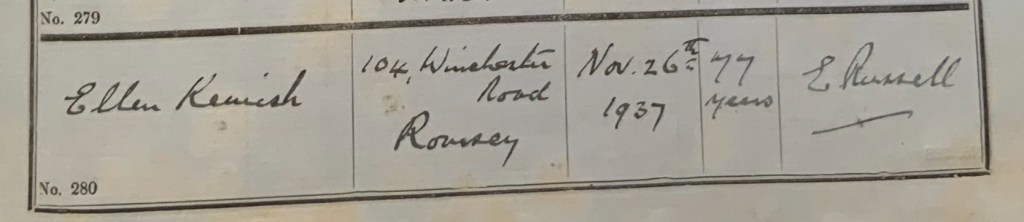 No. 279
Ellen Kemish
104, Winchester
Road
Romsey
Nov. 26th
1937
77
years
E Russell
No. 280